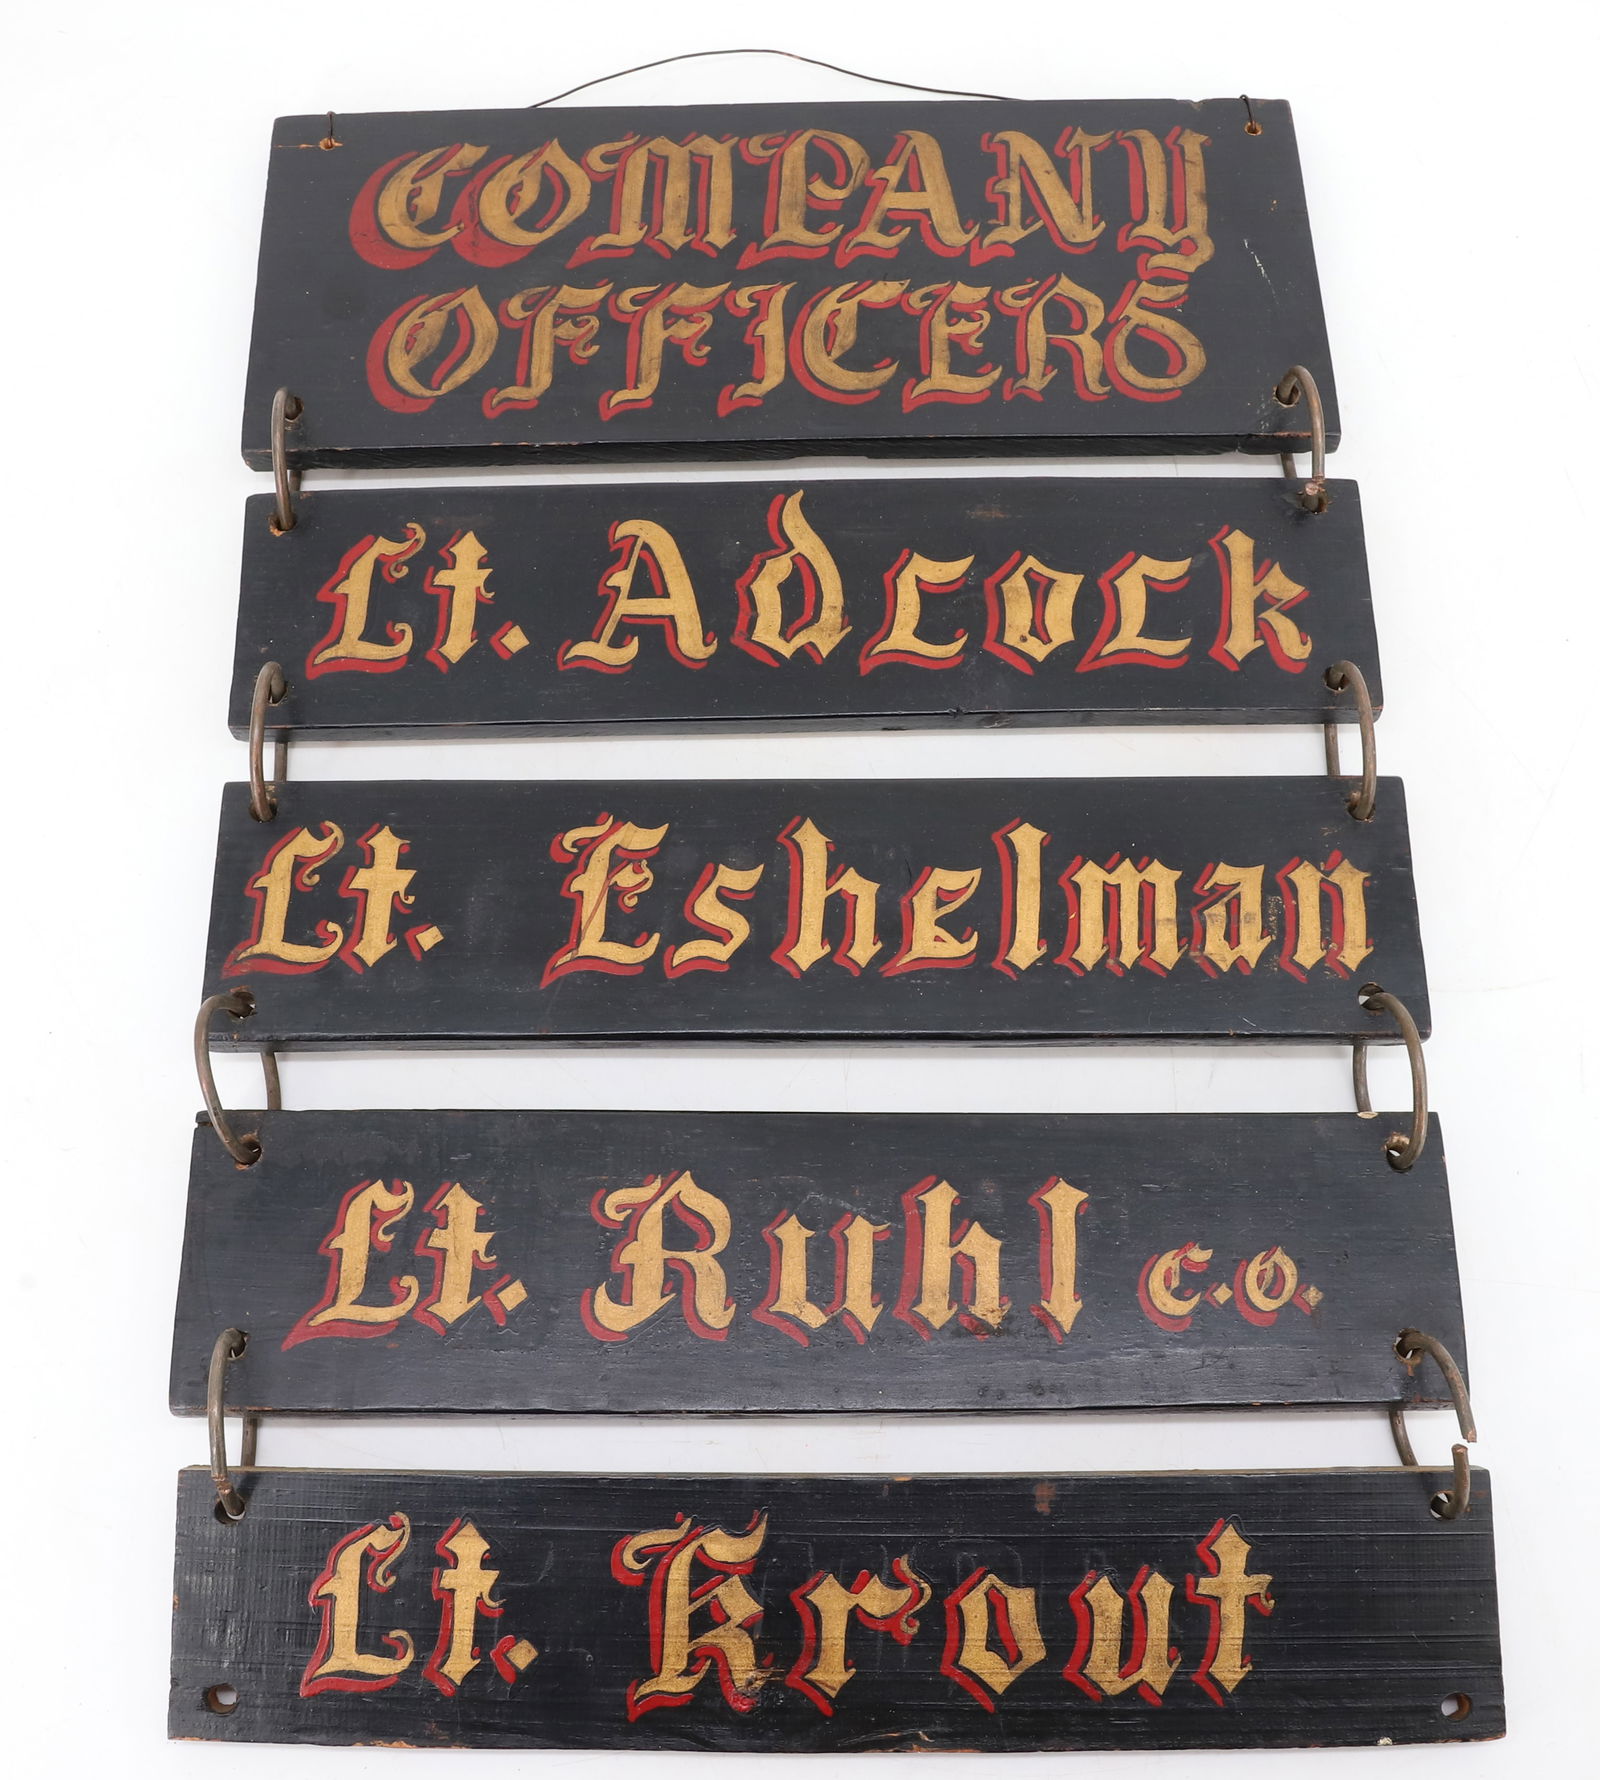 COMPANY
OFFICERS
Lt. Adcock
Lt. Eshelman
Lt. Ruhl C.O.
Lt. Krout